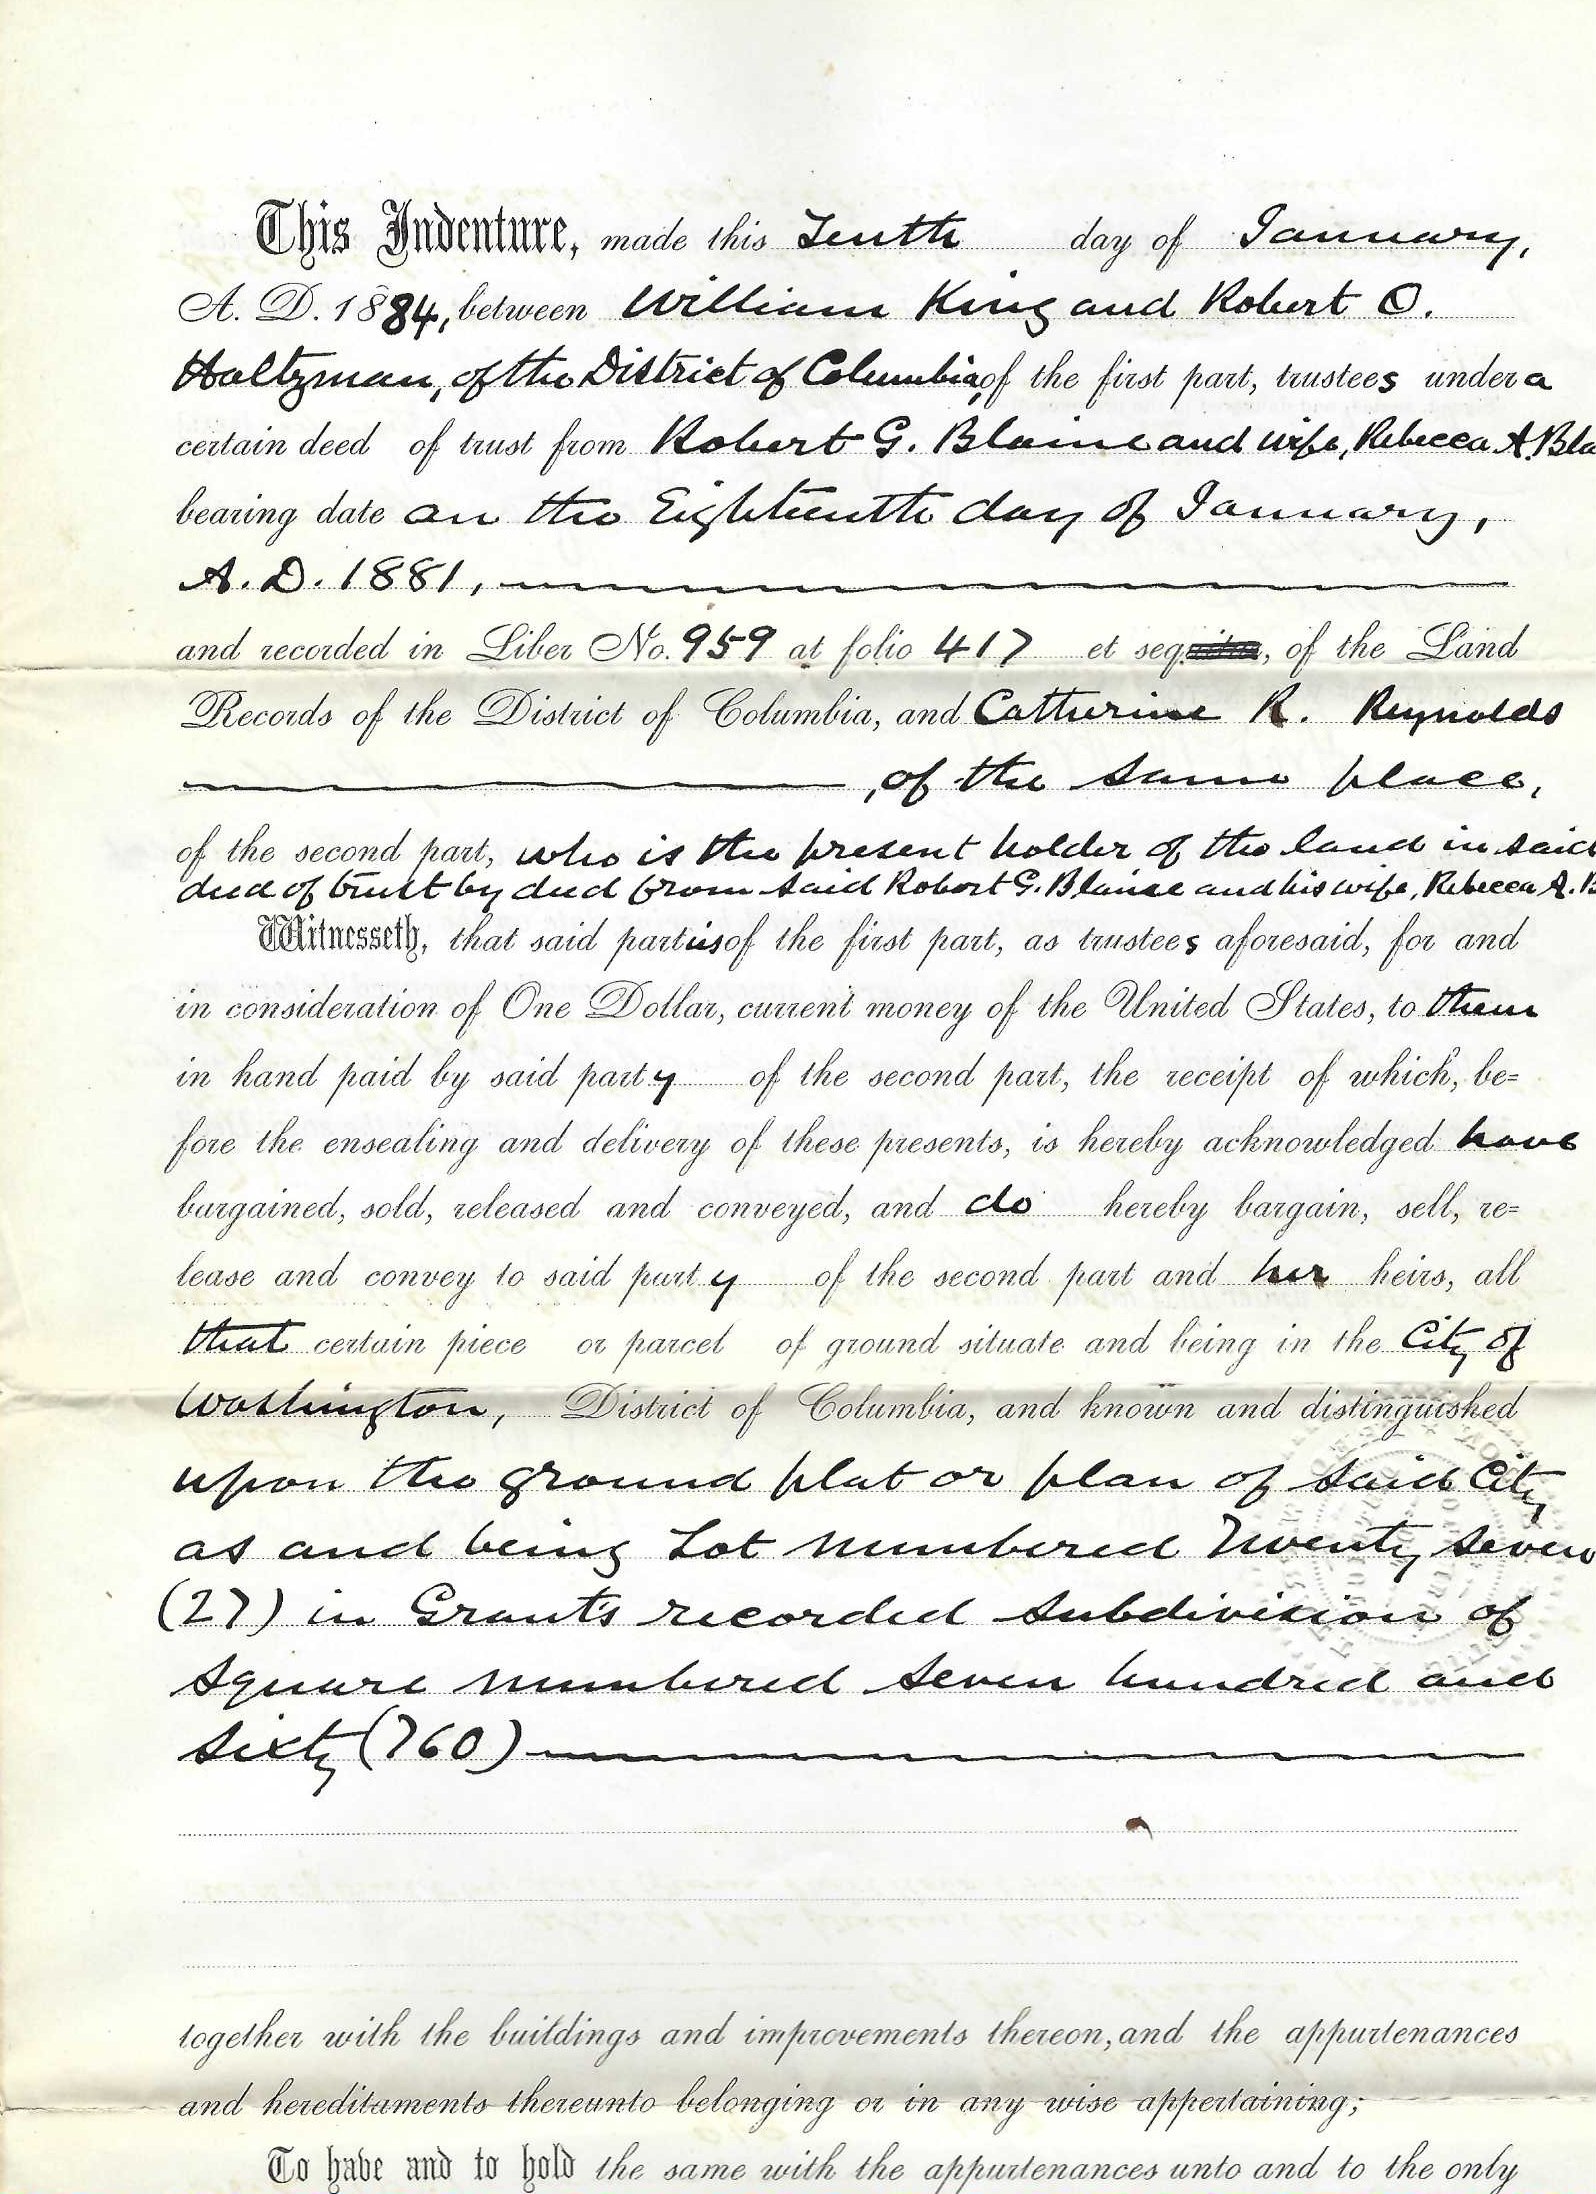 This Indenture, made this Tenth day of January,
A. D. 1884, between William King and Robert O.
Holtzman, of the District of Columbia, of the first part, trustees under a
certain deed of trust from Robert G. Blaine and wife, Rebecca A. Bla
bearing date on the Eighteenth day of January,
A. D. 1881,
and recorded in Liber No. 959 at folio 417 et seq., of the Land
Records of the District of Columbia, and Catherine R. Reynolds
, of the same place,
of the second part, who is the present holder of the land in said
deed of trust by deed from said Robert G. Blaine and his wife, Rebecca A. B
Witnesseth, that said parties of the first part, as trustees aforesaid, for and
in consideration of One Dollar, current money of the United States, to them
in hand paid by said party of the second part, the receipt of which, be=
fore the ensealing and delivery of these presents, is hereby acknowledged have
bargained, sold, released and conveyed, and do hereby bargain, sell, re=
lease and convey to said party of the second part and her heirs, all
that certain piece or parcel of ground situate and being in the City of
Washington, District of Columbia, and known and distinguished
upon the ground plat or plan of said City
as and being Lot numbered Twenty seven
(27) in Grant's recorded subdivision of
square numbered seven hundred and
sixty (760)
together with the buildings and improvements thereon, and the appurtenances
and hereditaments thereunto belonging or in any wise appertaining;
To have and to hold the same with the appurtenances unto and to the only